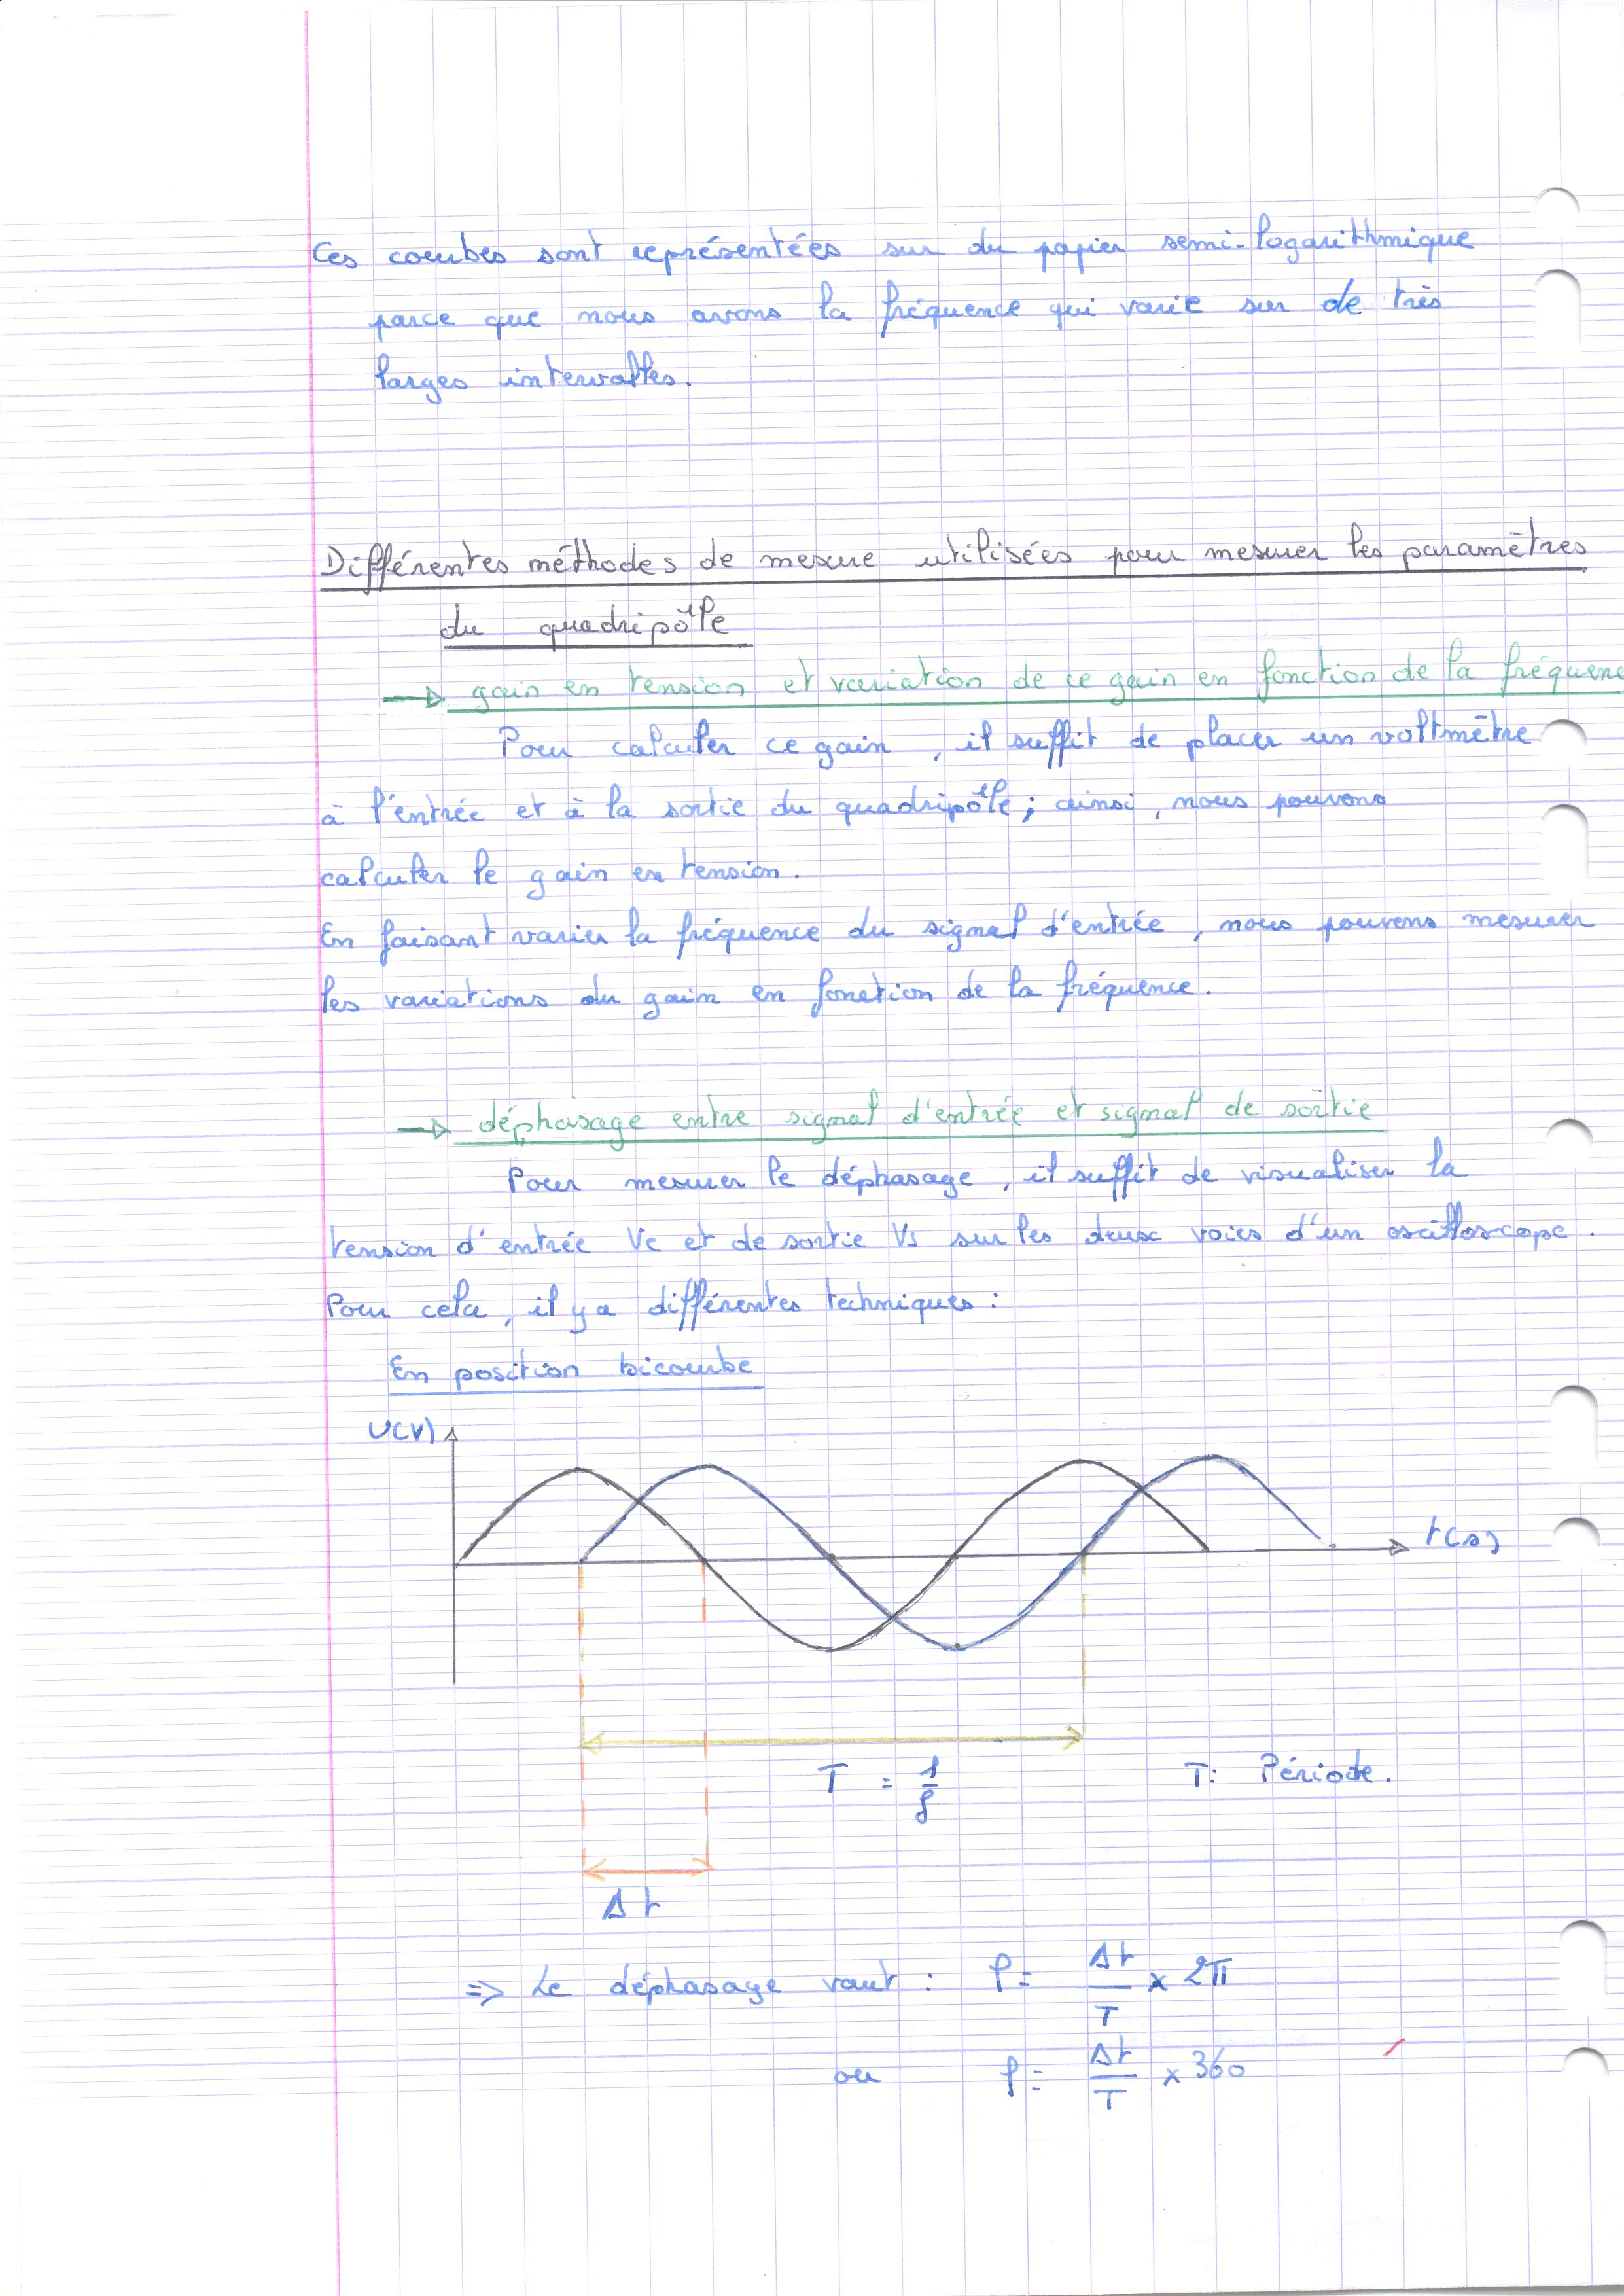 Ces courbes sont représentées sur du papier semi-logarithmique
parce que nous avons la fréquence qui varie sur de très
larges intervalles.
Différentes méthodes de mesure utilisées pour mesurer les paramètres
du quadripôle
→ gain en tension et variation de ce gain en fonction de la fréquenc
Pour calculer ce gain, il suffit de placer un voltmètre
à l'entrée et à la sortie du quadripôle ; ainsi, nous pouvons
calculer le gain en tension.
En faisant varier la fréquence du signal d'entrée, nous pouvons mesurer
les variations du gain en fonction de la fréquence.
→ déphasage entre signal d'entrée et signal de sortie
Pour mesurer le déphasage, il suffit de visualiser la
tension d'entrée Ve et de sortie Vs sur les deux voies d'un oscilloscope.
Pour cela, il y a différentes techniques :
En position bicourbe
U(V)
t(s)
T = 1/f
T : Période.
Δt
=> Le déphasage vaut : φ = Δt/T × 2π
ou φ = Δt/T × 360